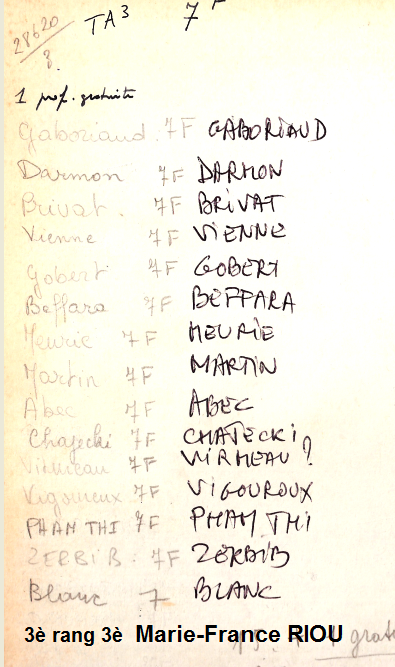 28620 TA³ 7F
8.
1 prof. gratuite
Gaboriaud. 7F GABORIAUD
Darmon 7F DARMON
Brivat. 7F BRIVAT
Vienne 7F VIENNE
Gobert 7F GOBERT
Beffara 7F BEFFARA
Meurie 7F MEURIE
Martin 7F MARTIN
Abec 7F ABEC
Chajecki 7F CHATECKI
7F VIRMEAU ?
Vigouroux 7F. VIGOUROUX
PHAN THI 7F PHAM THI
ZERBIB. 7F ZERBIB
Blanc 7 BLANC
3è rang 3è Marie-France RIOU